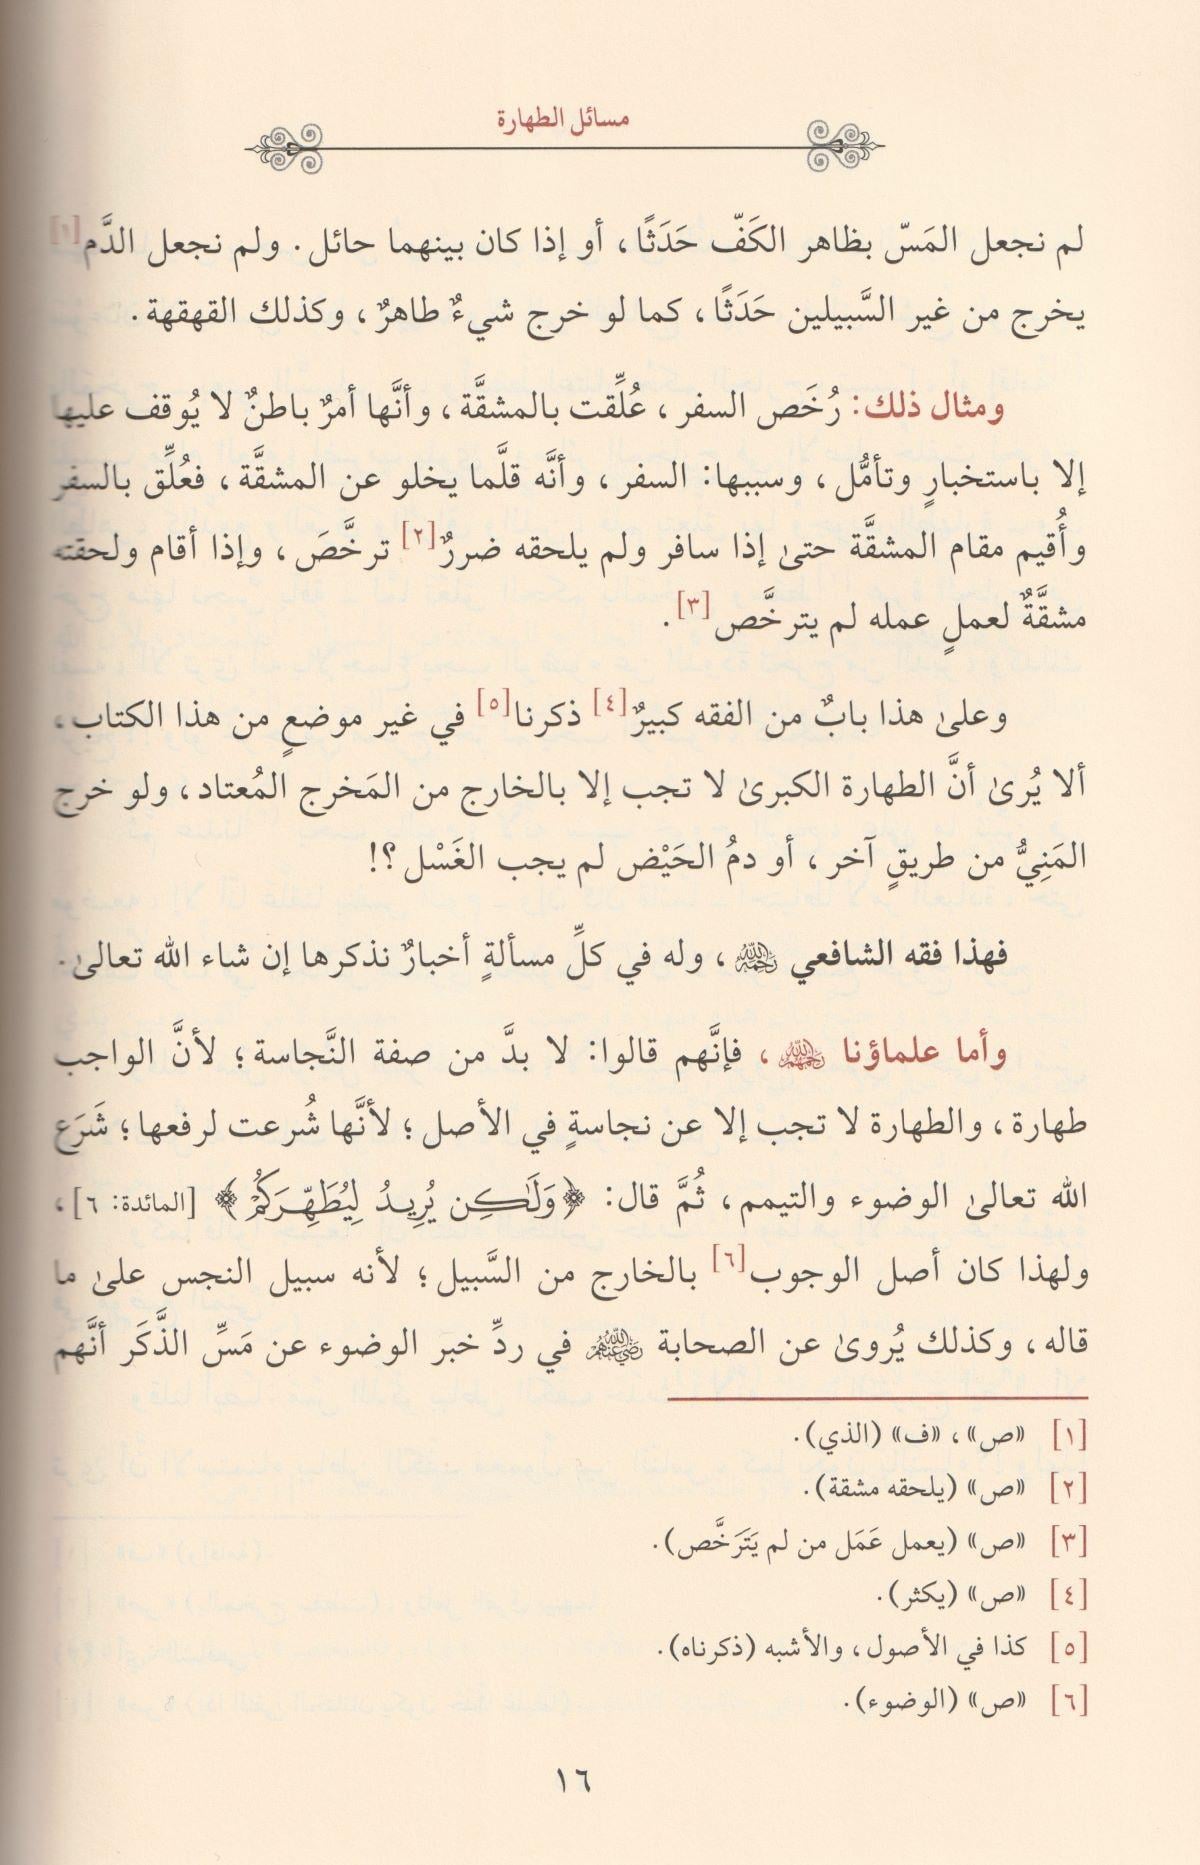 مسائل الطهارة
لم نجعل المَسّ بظاهر الكَفّ حَدَثًا، أو إذا كان بينهما حائل. ولم نجعل الدَّم[١]
يخرج من غير السَّبيلين حَدَثًا، كما لو خرج شيءٌ طاهرٌ، وكذلك القهقهة.
ومثال ذلك: رُخَص السفر، عُلِّقت بالمشقَّة، وأنَّها أمرٌ باطنٌ لا يُوقف عليها
إلا باستخبارٍ وتأمُّل، وسببها: السفر، وأنَّه قلَّما يخلو عن المشقَّة، فعُلِّق بالسفر
وأُقيم مقام المشقَّة حتىٰ إذا سافر ولم يلحقه ضررٌ[٢] ترخَّصَ، وإذا أقام ولحقته
مشقَّةٌ لعملٍ عمله لم يترخَّص[٣].
وعلىٰ هذا بابٌ من الفقه كبيرٌ[٤] ذكرنا[٥] في غير موضعٍ من هذا الكتاب،
ألا يُرىٰ أنَّ الطهارة الكبرىٰ لا تجب إلا بالخارج من المَخرج المُعتاد، ولو خرج
المَنِيُّ من طريقٍ آخر، أو دمُ الحَيْض لم يجب الغَسْل؟!
فهذا فقه الشافعي رحمه الله، وله في كلِّ مسألةٍ أخبارٌ نذكرها إن شاء الله تعالىٰ.
وأما علماؤنا رحمهم الله، فإنَّهم قالوا: لا بدَّ من صفة النَّجاسة؛ لأنَّ الواجب
طهارة، والطهارة لا تجب إلا عن نجاسةٍ في الأصل؛ لأنَّها شُرعت لرفعها؛ شَرَع
الله تعالىٰ الوضوء والتيمم، ثُمَّ قال: ﴿وَلَٰكِن يُرِيدُ لِيُطَهِّرَكُمْ﴾ [المائدة: ٦]،
ولهذا كان أصل الوجوب[٦] بالخارج من السَّبيل؛ لأنه سبيل النجس علىٰ ما
قاله، وكذلك يُروىٰ عن الصحابة رضي الله عنهم في ردِّ خبر الوضوء عن مَسِّ الذَّكَر أنَّهم
[١] «ص»، «ف» (الذي).
[٢] «ص» (يلحقه مشقة).
[٣] «ص» (يعمل عَمَل من لم يَتَرَخَّص).
[٤] «ص» (يكثر).
[٥] كذا في الأصول، والأشبه (ذكرناه).
[٦] «ص» (الوضوء).
١٦